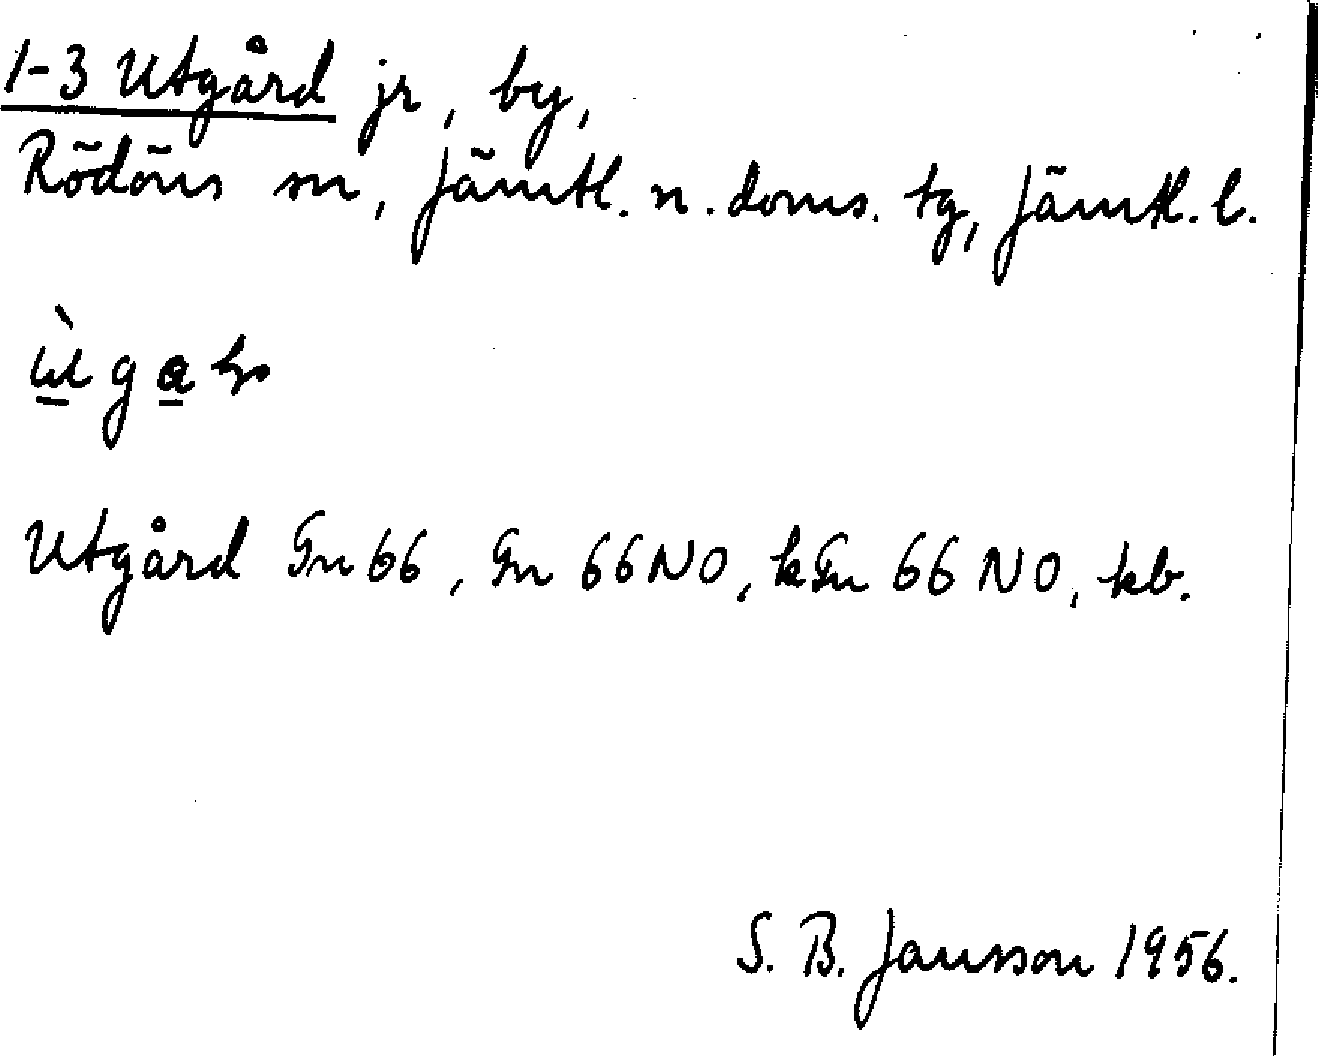 1-3 Utgård jr, by,
Rödöns sn, Jämtl. n. doms. tg, Jämtl. l.
Utgård Gn 66, Gn 66 NO, kGn 66 NO, kb.
S. B. Jansson 1956.